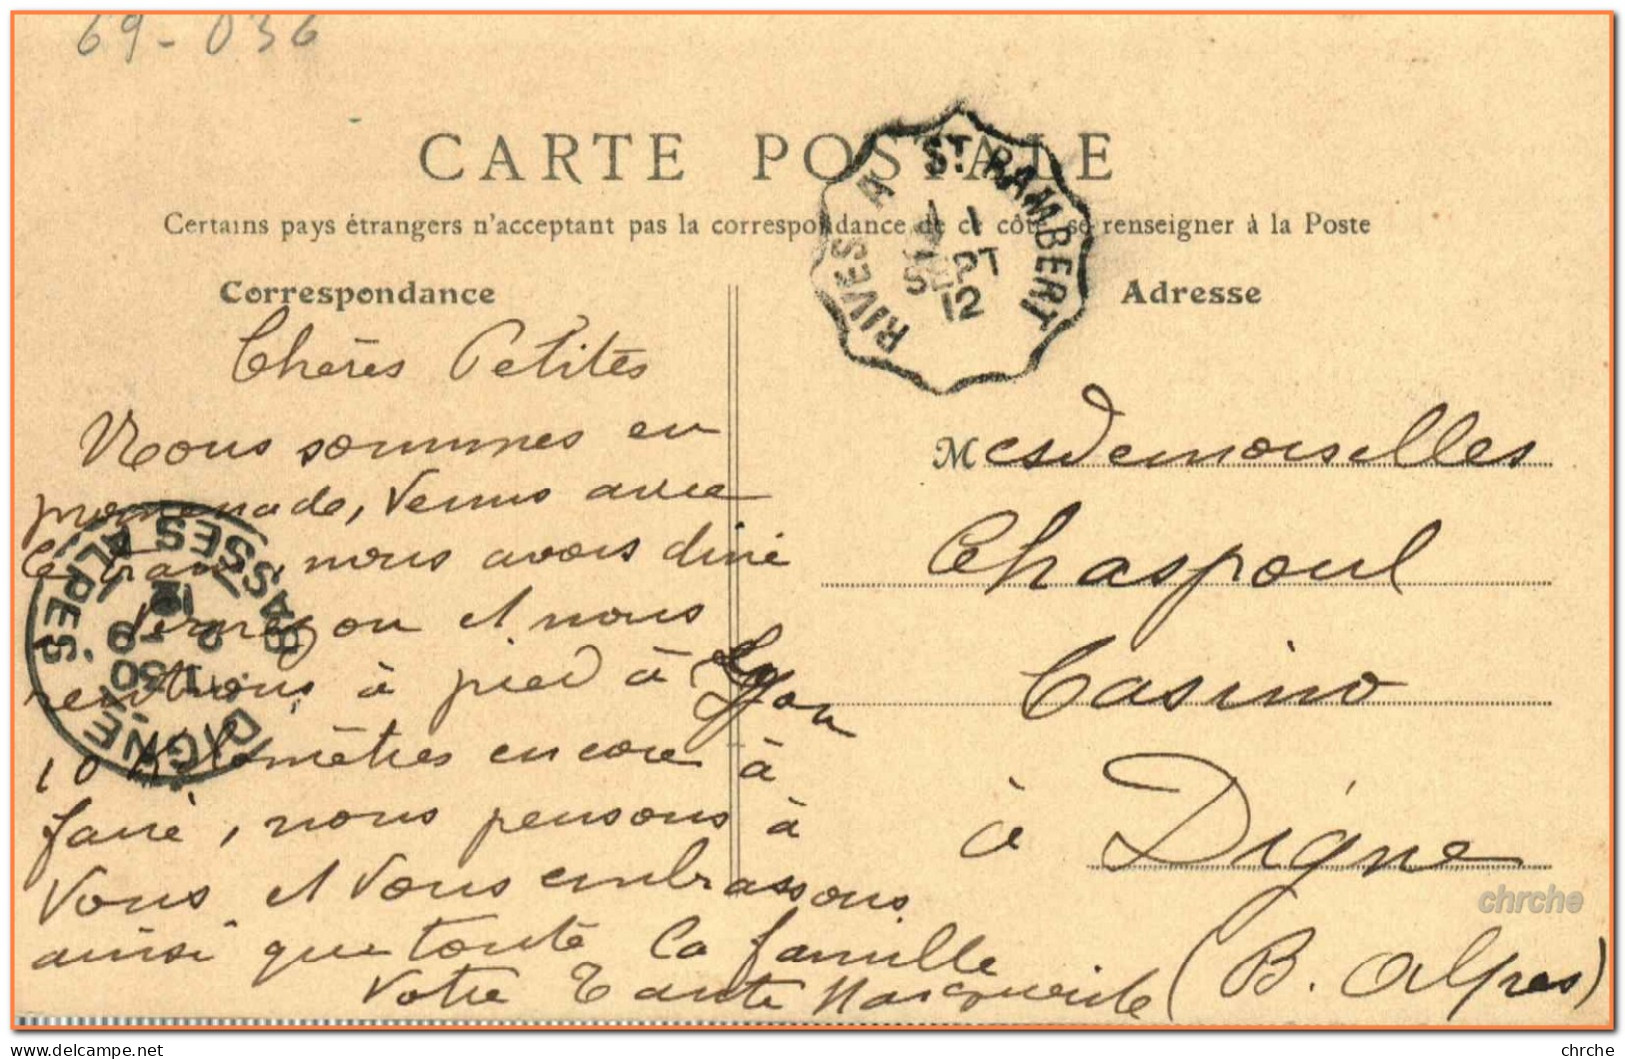 69-036
CARTE POSTALE
Certains pays étrangers n'acceptant pas la correspondance de ce côté, se renseigner à la Poste
Correspondance
Adresse
RIVES A ST. RAMBERT
1 1
SEPT
12
Chères Petites
Nous sommes en
promenade, venus avec
le tram, nous avons diné
à Vernaison et nous
rentrons à pied à Lyon
10 Kilomètres encore à
faire, nous pensons à
vous et vous embrassons
ainsi que toute la famille
Votre Tante Marguerite
Mesdemoiselles
Chaspoul
Casino
à Digne
(B. Alpes)
DIGNE
BASSES ALPES
1 30
2 - 9
12
chrche
delcampe.net
chrche